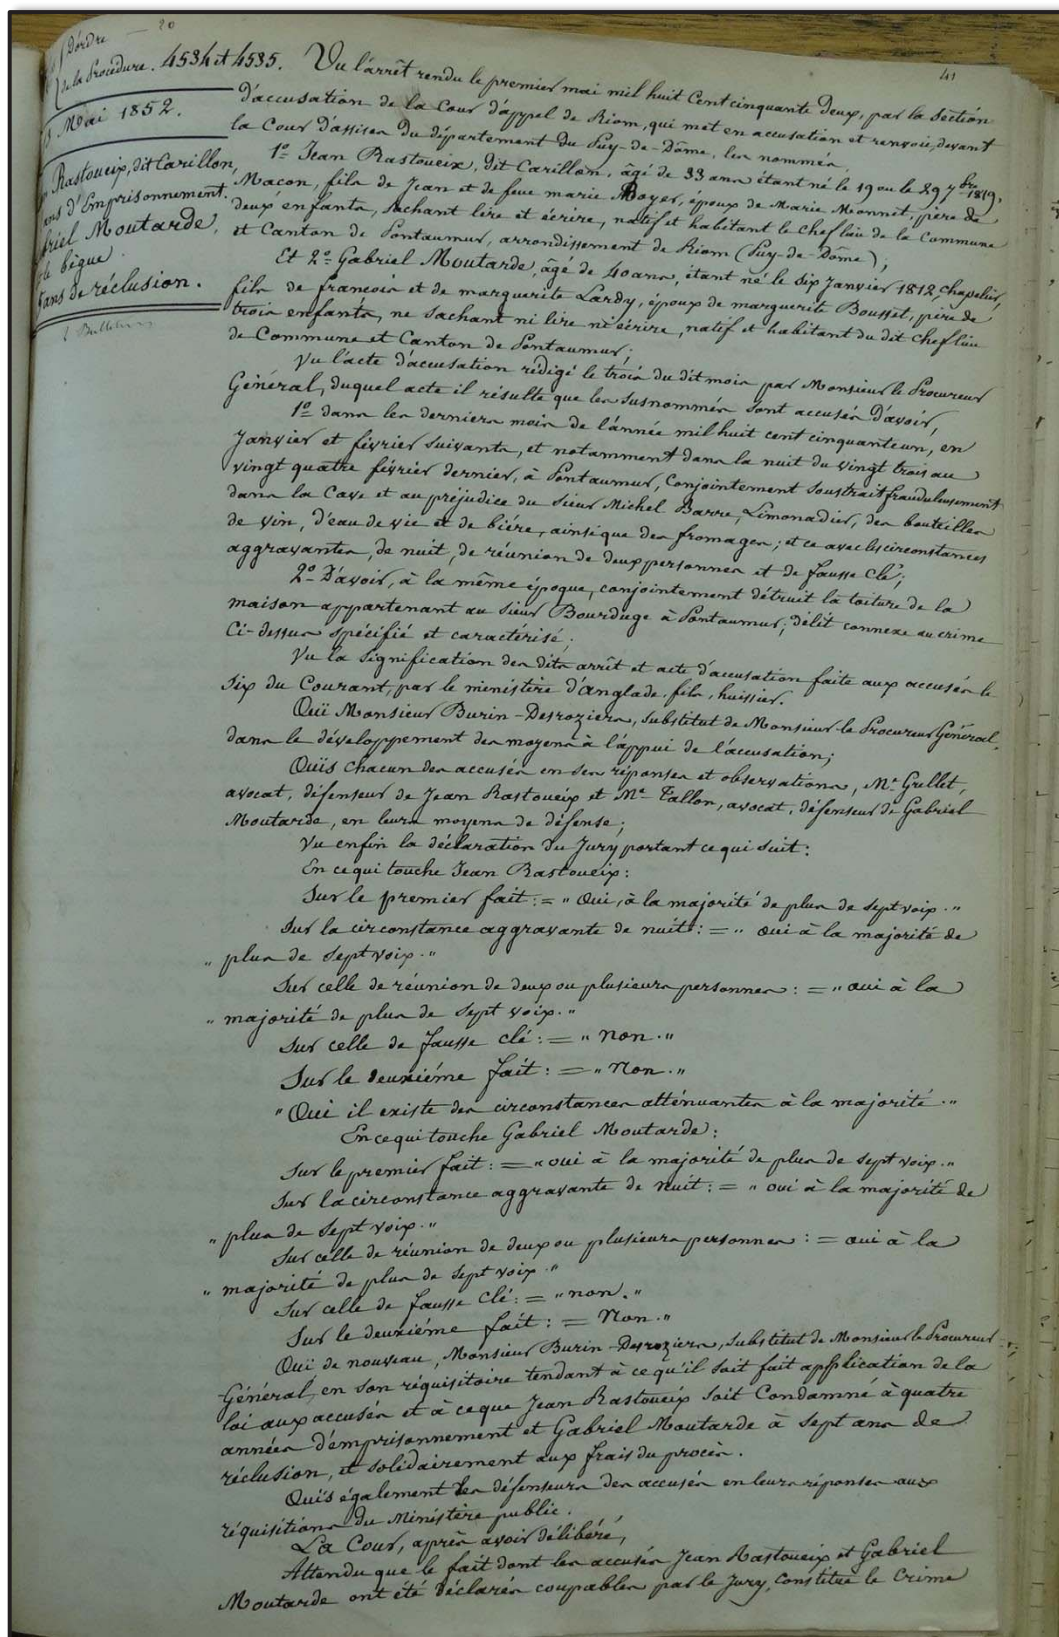 20
d'ordre
de la Procédure. 4534 et 4535.
41
Mai 1852.
Rastoueix, dit Carillon,
ans d'Emprisonnement.
Gabriel Moutarde,
le bègue
ans de réclusion.
Vu l'arrêt rendu le premier mai mil huit Cent cinquante deux, par la Section
d'accusation de la Cour d'appel de Riom, qui met en accusation et renvoie, devant
la Cour d'assises du département du Puy-de-Dôme, les nommés,
1º Jean Rastoueix, dit Carillon, âgé de 33 ans étant né le 19 ou le 29 7bre 1819,
Macon, fils de Jean et de feue marie Boyer, époux de Marie Monnet, père de
deux enfants, sachant lire et écrire, natif et habitant le chef lieu de la Commune
et Canton de Pontaumur, arrondissement de Riom (Puy-de-Dôme);
Et 2º Gabriel Moutarde, âgé de 40 ans, étant né le six Janvier 1812, chapelier,
fils de francois et de marguerite Lardy, époux de marguerite Bousset, père de
trois enfants, ne sachant ni lire ni écrire, natif et habitant du dit chef lieu
de Commune et Canton de Pontaumur;
Vu l'acte d'accusation rédigé le trois du dit mois par Monsieur le Procureur
Général, duquel acte il résulte que les susnommés sont accusés d'avoir,
1º dans les derniers mois de l'année mil huit cent cinquante un, en
Janvier et février suivants, et notamment dans la nuit du vingt trois au
vingt quatre février dernier, à Pontaumur, Conjointement soustrait frauduleusement
dans la Cave et au préjudice du sieur Michel Barre, Limonadier, des bouteilles
de vin, d'eau de vie et de bière, ainsi que des fromages; et ce avec les circonstances
aggravantes, de nuit, de réunion de deux personnes et de fausse Clé;
2º D'avoir, à la même époque, conjointement détruit la toiture de la
maison appartenant au sieur Bourduge à Pontaumur; délit connexe au crime
Ci-dessus spécifié et caractérisé;
Vu la signification des dits arrêt et acte d'accusation faite aux accusés le
six du Courant, par le ministère d'anglade, fils, huissier.
Ouï Monsieur Burin-Desroziers, substitut de Monsieur le Procureur Général,
dans le développement des moyens à l'appui de l'accusation;
Ouïs chacun des accusés en ses réponses et observations, Me Grellet,
avocat, défenseur de Jean Rastoueix et Me Tallon, avocat, défenseur de Gabriel
Moutarde, en leurs moyens de défense;
Vu enfin la déclaration du Jury portant ce qui suit:
En ce qui touche Jean Rastoueix:
Sur le premier fait: = " Oui, à la majorité de plus de sept voix. "
Sur la circonstance aggravante de nuit: = " oui à la majorité de
" plus de sept voix. "
Sur celle de réunion de deux ou plusieurs personnes: = " oui à la
" majorité de plus de sept voix. "
Sur celle de fausse clé: = " non. "
Sur le deuxième fait: = " Non. "
" Oui il existe des circonstances atténuantes à la majorité. "
En ce qui touche Gabriel Moutarde:
Sur le premier fait: = " oui à la majorité de plus de sept voix. "
Sur la circonstance aggravante de nuit: = " oui à la majorité de
" plus de sept voix. "
Sur celle de réunion de deux ou plusieurs personnes: = oui à la
" majorité de plus de sept voix. "
Sur celle de fausse Clé: = " non. "
Sur le deuxième fait: = Non. "
Ouï de nouveau, Monsieur Burin-Desroziers, substitut de Monsieur le Procureur
Général, en son réquisitoire tendant à ce qu'il soit fait application de la
loi aux accusés et à ce que Jean Rastoueix soit Condamné à quatre
années d'emprisonnement et Gabriel Moutarde à sept ans de
réclusion, et solidairement aux frais du procès.
Ouïs également les défenseurs des accusés en leurs réponses aux
réquisitions du Ministère public.
La Cour, après avoir délibéré,
Attendu que le fait dont les accusés Jean Rastoueix et Gabriel
Moutarde ont été déclarés coupables par le Jury, Constitue le Crime